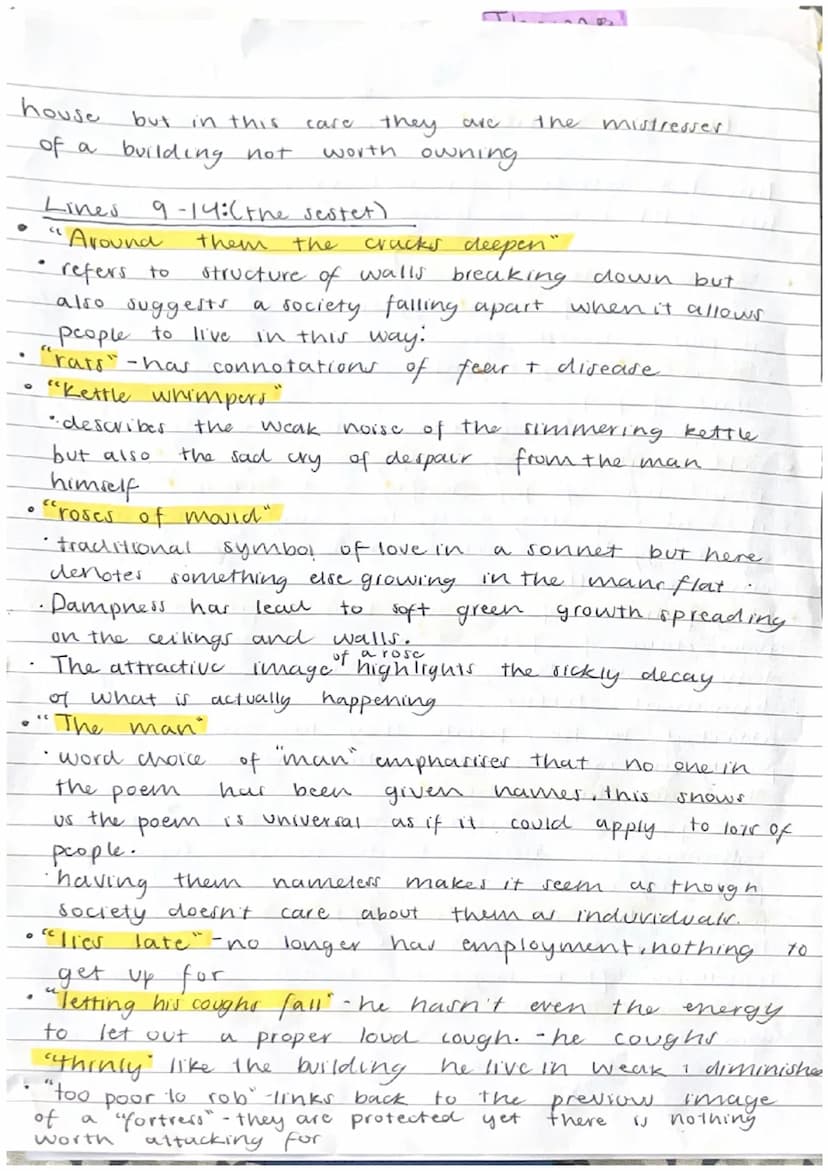 house but in this case they are the mistresses
of a building not worth owning
Lines 9-14:(the sestet)
• "Around them the cracks deepen"
• refers to structure of walls breaking down but
also suggests a society falling apart when it allows
people to live in this way.
• "rats" - has connotations of fear + disease
• "Kettle whimpers"
• describes the weak noise of the simmering kettle
but also the sad cry of despair from the man
himself
• "roses of mould"
• traditional symbol of love in a sonnet but here
denotes something else growing in the mans flat.
• Dampness has lead to soft green growth spreading
on the ceilings and walls.
• The attractive image of a rose highlights the sickly decay
of what is actually happening
• "The man"
• word choice of "man" emphasises that no one in
the poem has been given names, this shows
us the poem is universal as if it could apply to lots of
people.
• having them nameless makes it seem as though
society doesn't care about them as individuals.
• "lies late" - no longer has employment, nothing to
get up for
• "letting his coughs fall" - he hasn't even the energy
to let out a proper loud cough. - he coughs
"thinly" like the building he live in weak + diminishe
• "too poor to rob" - links back to the previous image
of a "fortress" - they are protected yet there is nothing
worth attacking for